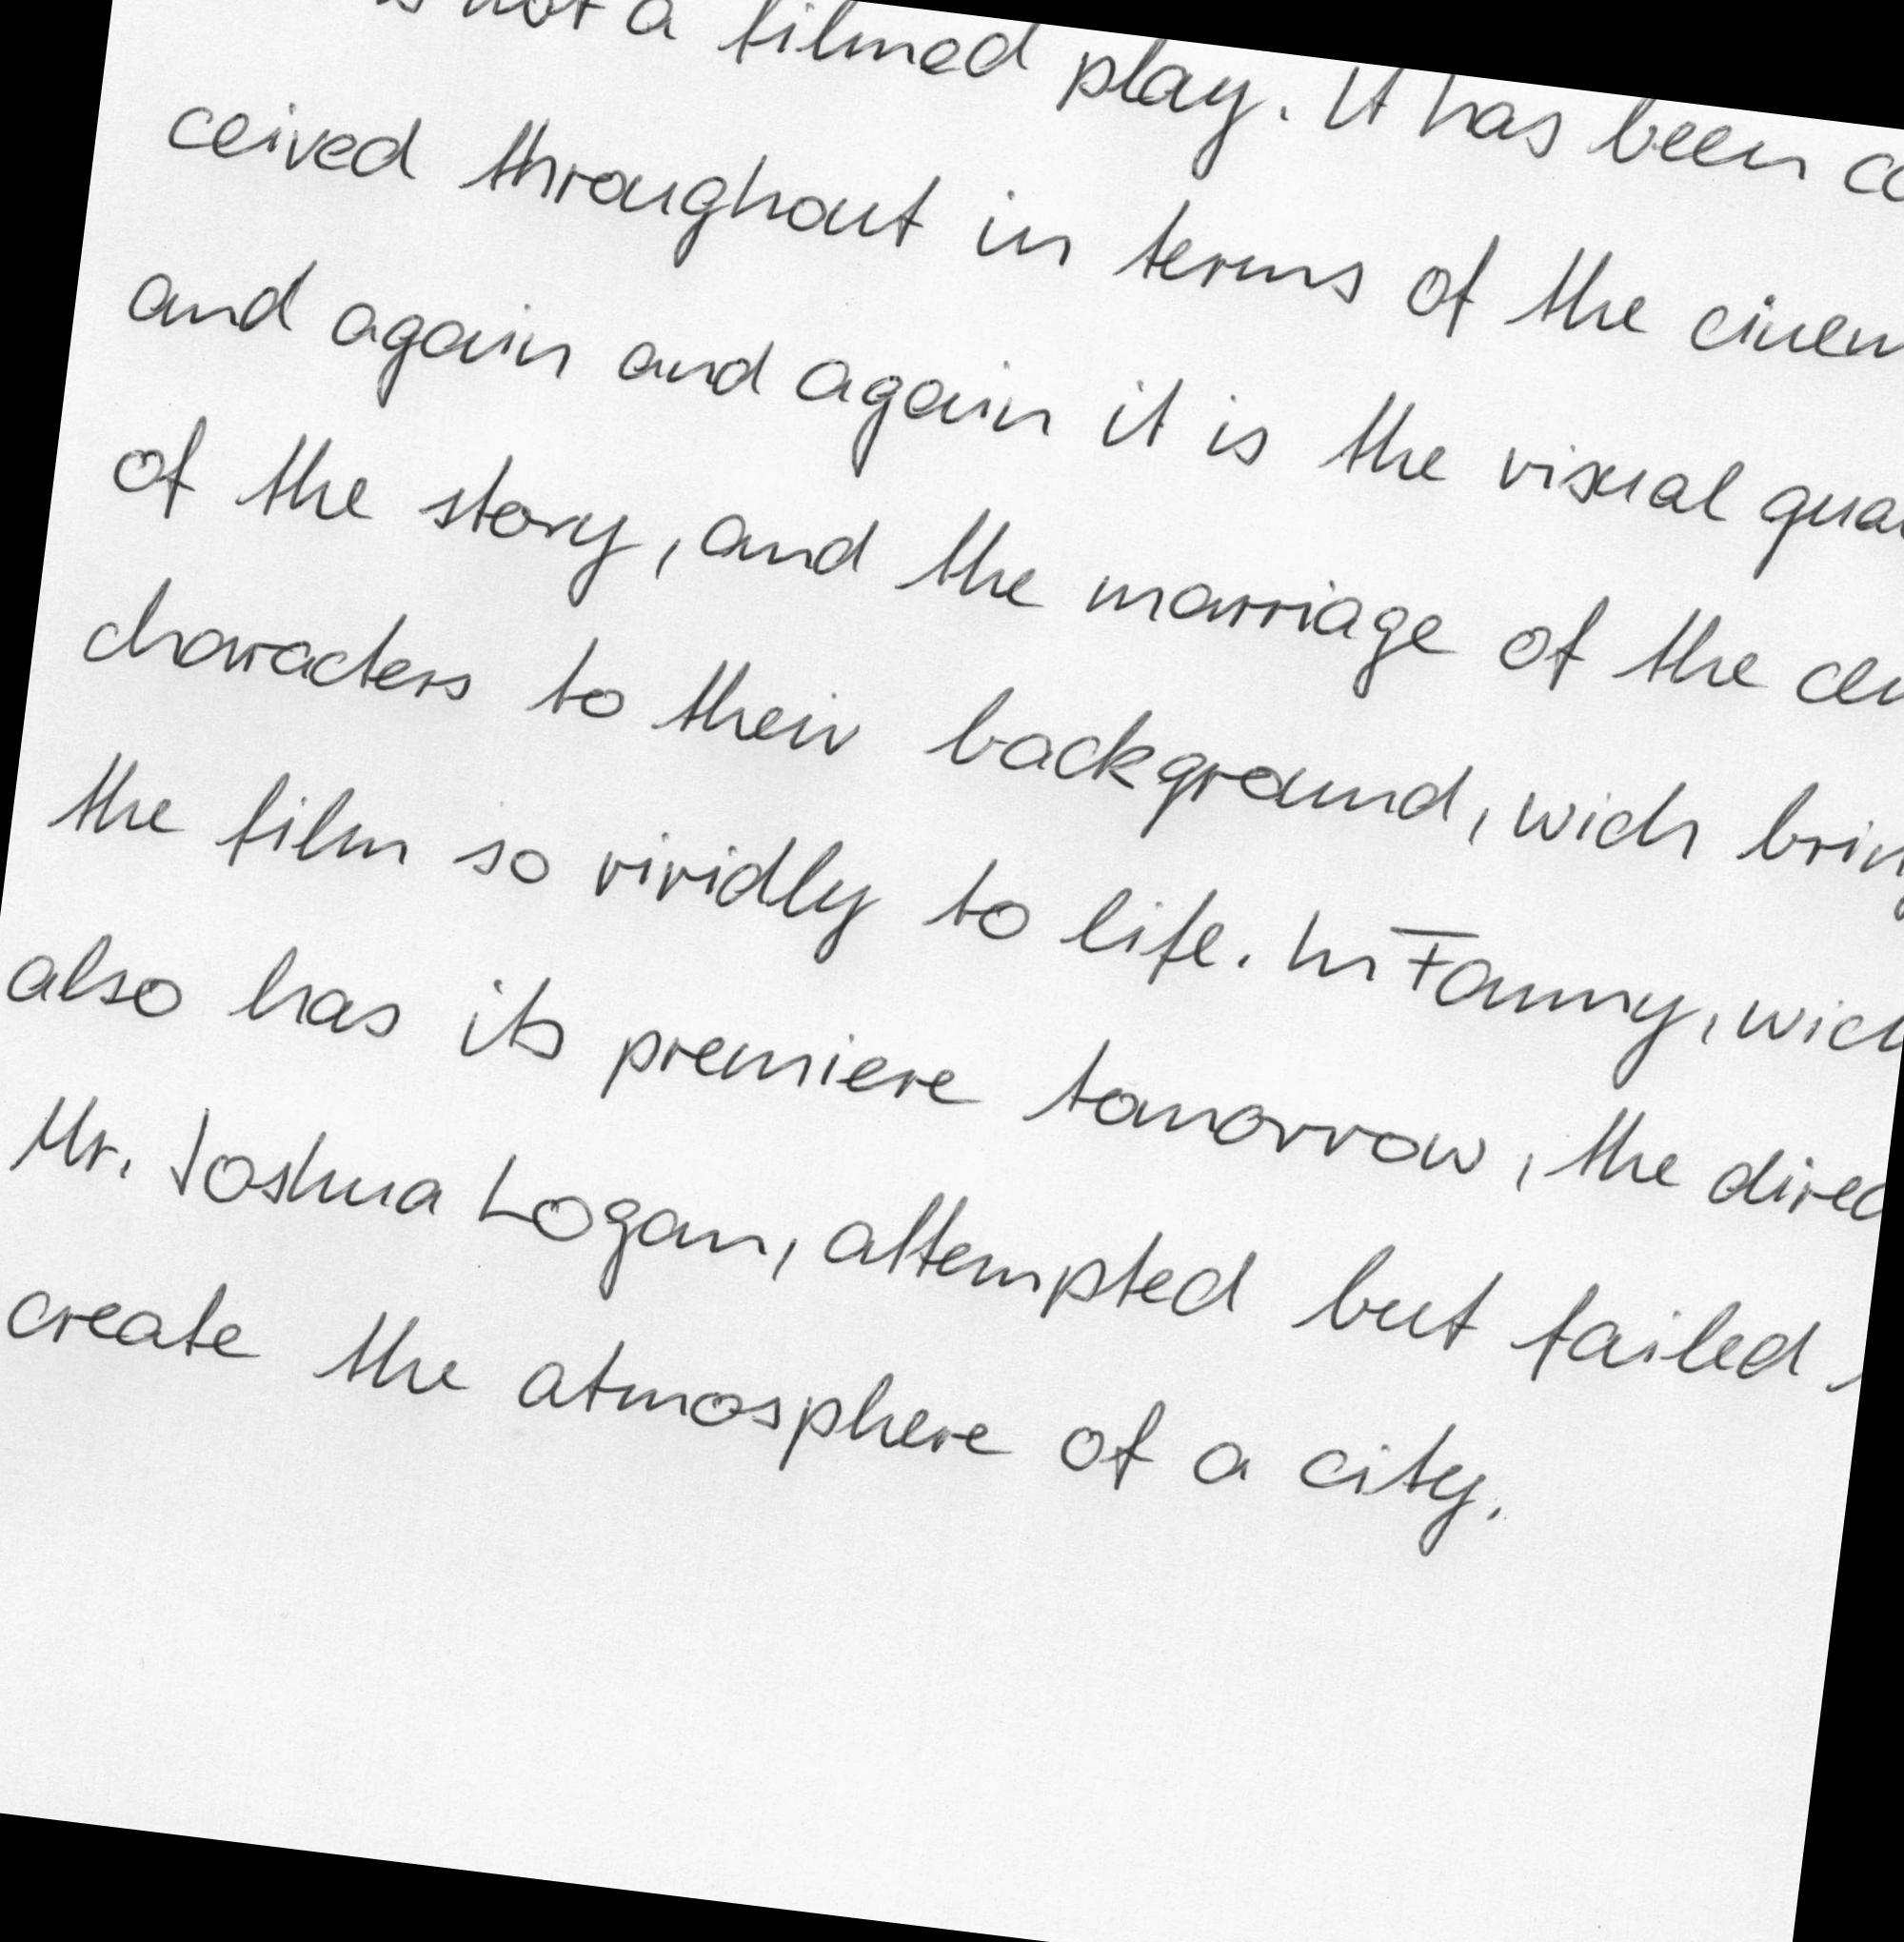 is not a filmed play. It has been
ceived throughout in terms of the
and again and again it is the visual
of the story, and the marriage of the
characters to their background, wich
the film so vividly to life. In Fanny,
also has its premiere tomorrow, the
Mr. Joshua Logan, attempted but failed
create the atmosphere of a city.